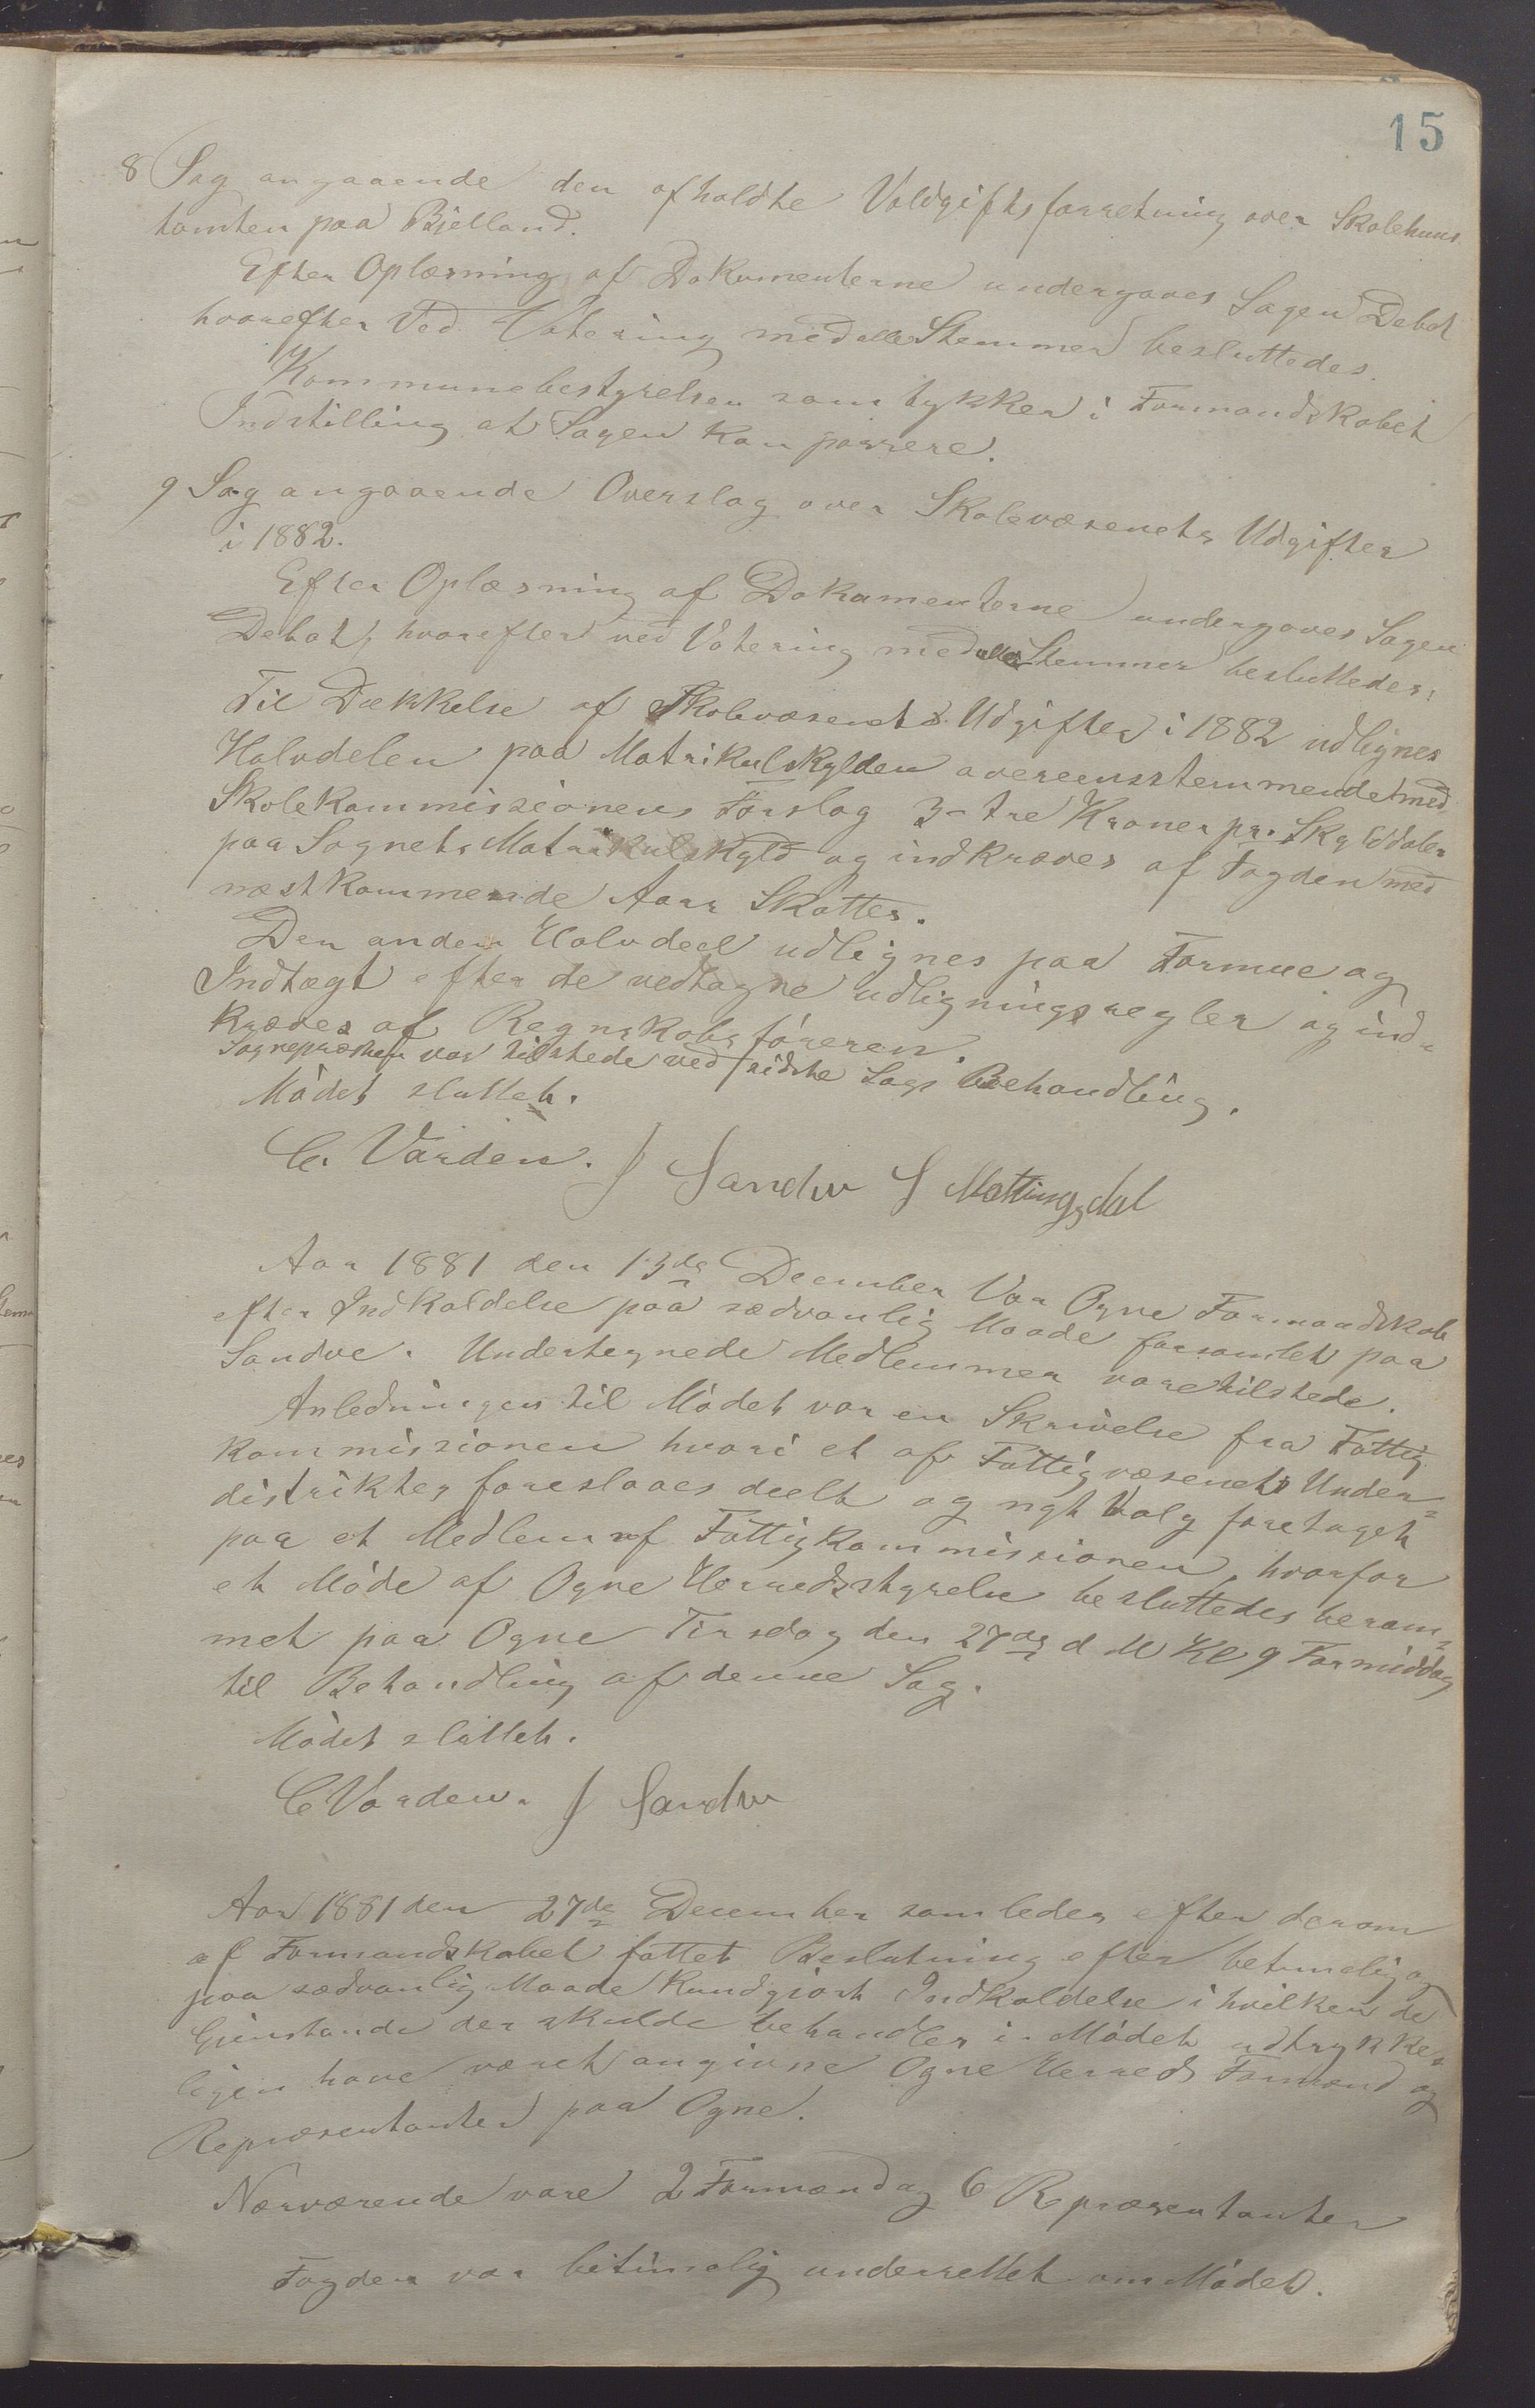 15
8 Sag angaaende den afholdte Voldgiftsforretning over Skolehuus
tomten paa Bjelland.
Efter Oplæsning af Dokumenterne undergaves Sagen Debat
hvorefter Ved Votering med alle Stemmer besluttedes.
Kommunebestyrelsen samtykker i Formandskabet
Indstilling at Sagen kan passere.
9 Sag angaaende Overslag over Skolevæsenets Udgifter
i 1882.
Efter Oplæsning af Dokumenterne undergaves Sagen
Debat, hvorefter ved Votering med alle Stemmer besluttedes:
Til Dækkelse af Skolevæsenets Udgifter i 1882 udlignes
Halvdelen paa Matrikulskylden overeensstemmende med
Skolekommissionens Forslag 3 - tre Kroner pr. Skylddaler
paa Sognets Matrikulskyld og indkræves af Fogden med
næstkommende Aars Skatter.
Den anden Halvdeel udlignes paa Formue og
Indtægt efter de vedtagne udligningsregler og ind-
kræves af Regnskabsføreren.
Sognepræsten var tilstede ved sidste Sags Behandling.
Mödet sluttet.
C. Varden. J Sandve S Mattingsdal
Aar 1881 den 13de December Var Ogne Formandskab
efter Indkaldelse paa sædvanlig Maade forsamlet paa
Sandve. Undertegnede Medlemmer vare tilstede.
Anledningen til Mödet var en Skrivelse fra Fattig
kommissionen hvori et af Fattigvæsenets Under-
distrikter foreslaaes deelt og nyt Valg foretaget
paa et Medlem af Fattigkommissionen, hvorfor
et Möde af Ogne Herredsstyrelse besluttedes beram-
met paa Ogne Tirsdag den 27de d M Kl 9 Formiddag
til Behandling af denne Sag.
Mödet sluttet.
C Varden. J Sandve
Aar 1881 den 27de December samledes efter derom
af Formandskabet fattet Beslutning efter betimelig og
paa sædvanlig Maade Kundgjort Indkaldelse i hvilken de
Gjenstande der skulde behandles i Mödet udtrykke-
ligen have været angivne Ogne Herreds Formænd og
Repræsentanter paa Ogne.
Nærværende vare 2 Formænd og 6 Repræsentanter
Fogden var betimelig underrettet om Mödet.